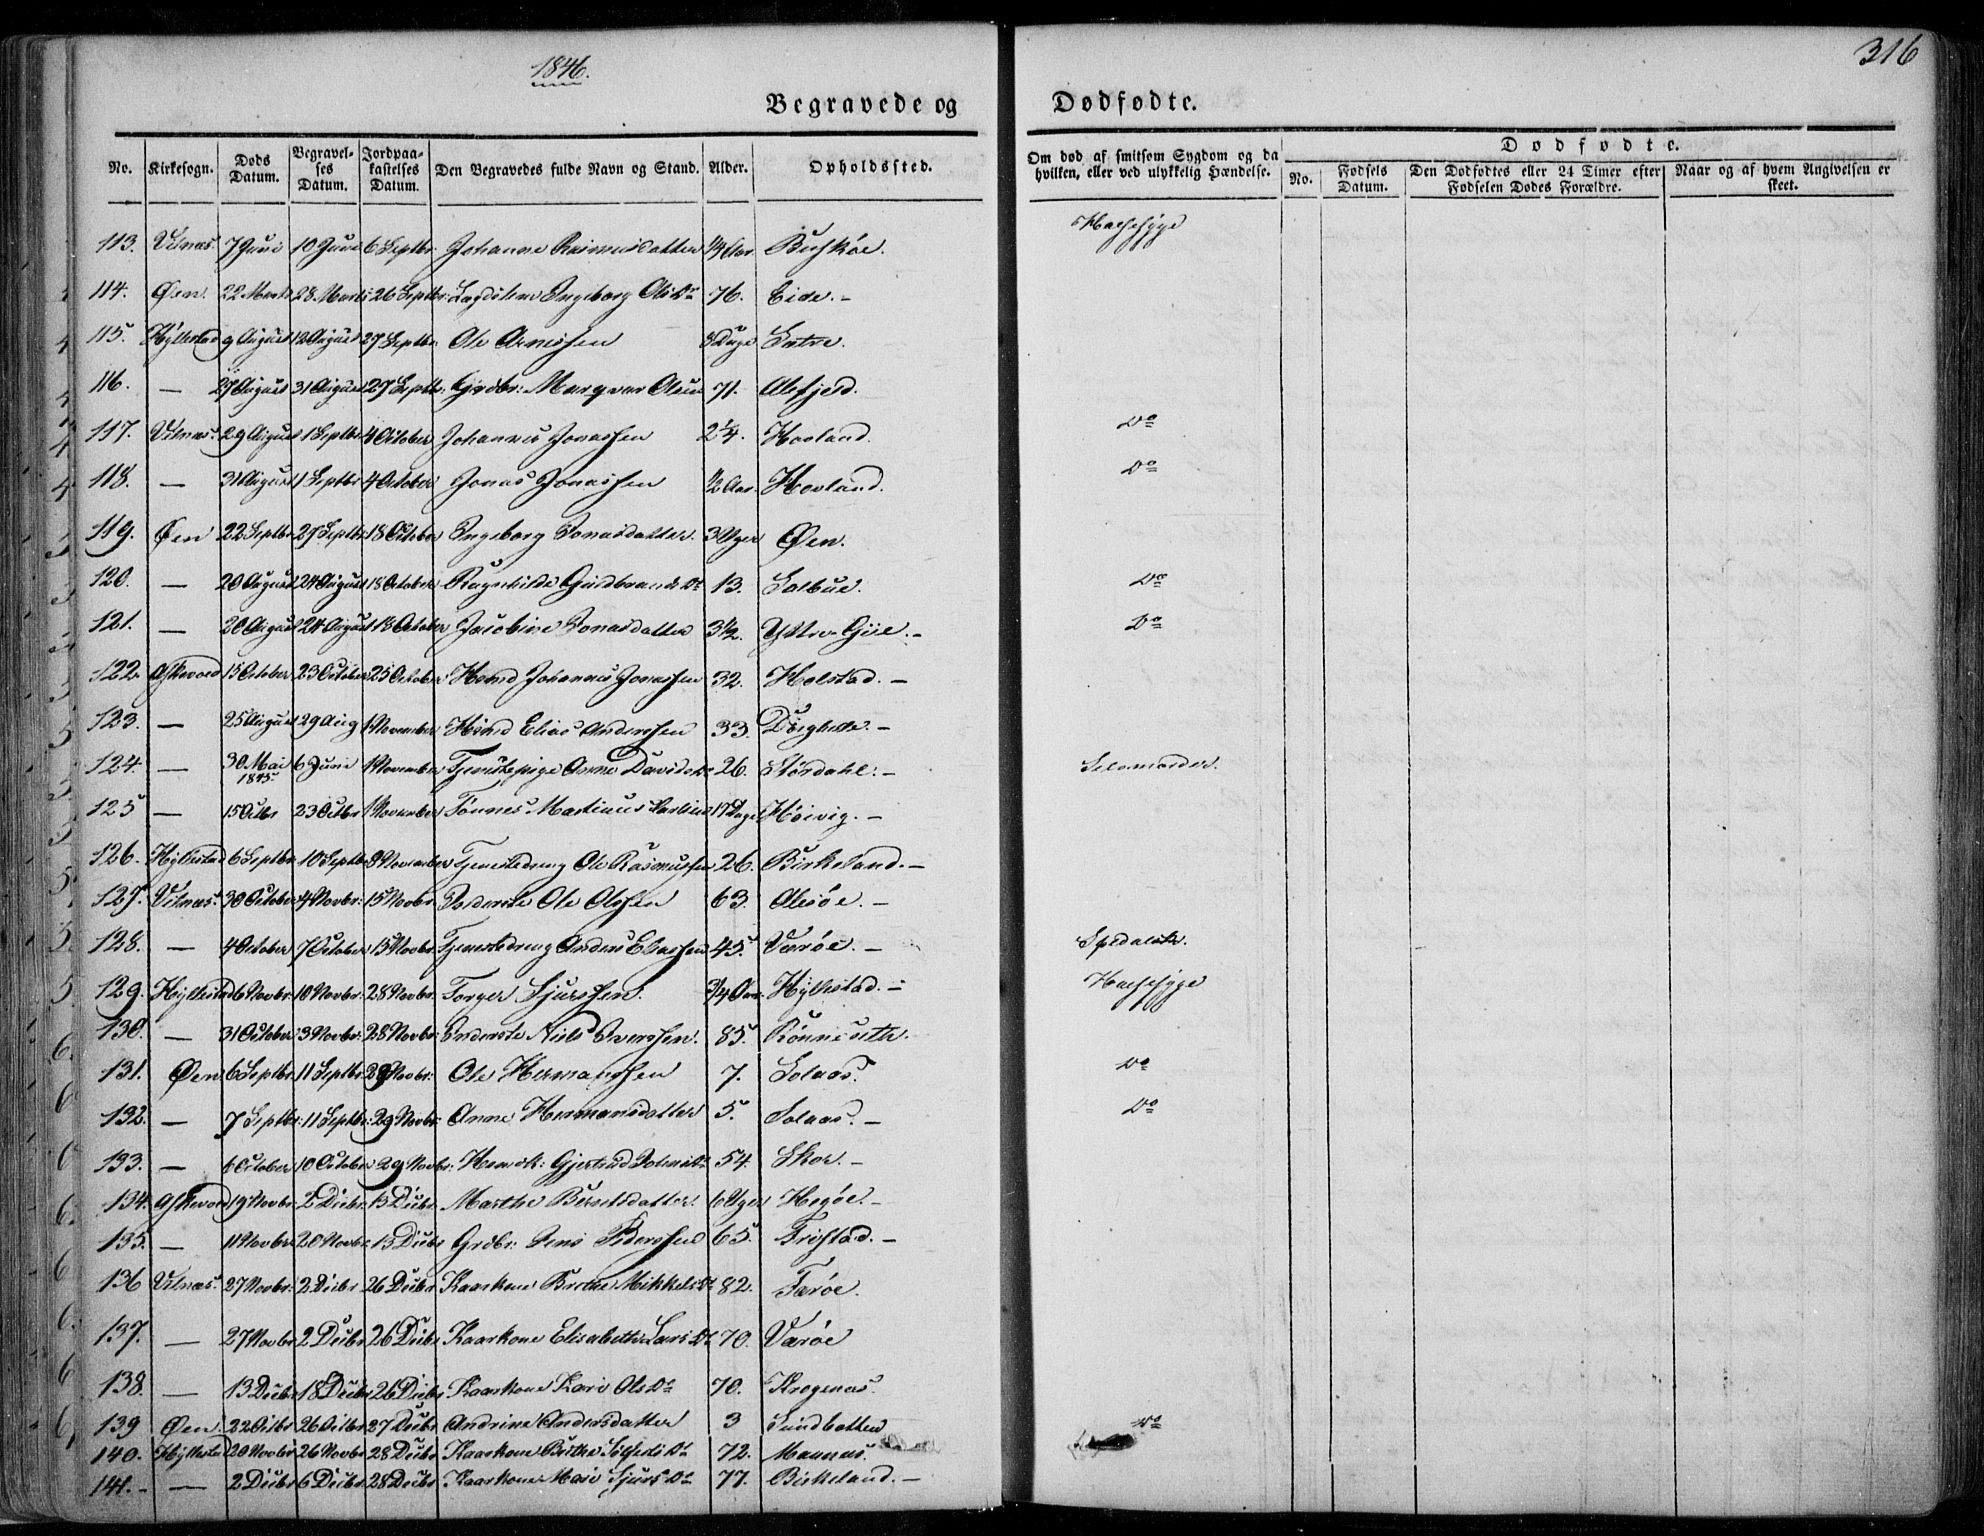 1846.
316
Begravede og Dødfødte.
No. Kirkesogn. Døds Datum. Begravelses Datum. Jordpaakastelses Datum. Den Begravedes fulde Navn og Stand. Alder. Opholdssted. Om død af smitsom Sygdom og da hvilken, eller ved ulykkelig Hændelse. Dødfødte.
No. Fødsels Datum. Den Dødfødtes eller 24 Timer efter Fødselen Dødes Forældre. Naar og af hvem Angivelsen er skeet.
113. Vilnæs 7 Juni 10 Juni 6 Septbr Johanne Rasmusdatter 1/4 Aar Buskøe. Halssyge
114. Øen. 22 Marts 28 Marts 26 Septbr: Ingeborg Olsdr 76. Eide. -
115. Hyllestad 9 August 12 August 27 Septbr. Ole Arnessen 8 Dage
116. — 27 August 31 August 27 Septbr: Grdbr: Olsen 71.
117. Vilnæs 29 August 1 Septbr 4 October Johannes Jonassen 2 1/4. Hovland. Do
118. — 31 August 1 Septbr 4 October Jonas Jonassen 1/2 Aar. Hovland. Do
119. Øen 22 Septbr 27 Septbr 18 October Ingeborg Jonasdatter. 3 Uger Øen.
120. — 20 August 24 August 18 October Ragnhilde Guldbrandsdr 13. Solbue. Do
121. — 20 August 24 August 18 October Jacobine Jonasdatter 3 1/2. Yttre-Giie. - Do
122. Askevold 15 October 23 October 25 October Hmd Johannes Jonassen 32. Holstad. -
123. — 25 August 29 Aug 1 November Hmd Elias Anderssen 33. -
124. — 30 Mai 1845 6 Juni 1 November Tjenestepige Anne Davidsdr 26. Stordahl. - Selvmorder.
125 — 15 Octbr 23 Octbr 1 November Tønnes Martinus 17 Dage Høivig. -
126. Hyllestad 6 Septbr 10 Septbr 8 November Tjenestedreng Ole Rasmussen 26. Birkeland. -
127. Vilnæs 30 October 4 Novbr: 15 Novbr Inderste Ole Olssen 63. Alsøe. -
128. — 4 October 7 October 15 Novbr. Tjenestedreng Anders Eliassen 45. Værøe. - Spedalsk.
129. Hyllestad 6 Novbr. 10 Novbr. 28 Novbr. Torger Sjurssen. 3/4 Aar. Hyllestad. - Halssyge
130. — 31 October 3 Novbr: 28 Novbr: Inderste Niels Iverssen. 85. Rønneseth.
131. Øen 6 Septbr. 11 Septbr 29 Novbr: Ole Hermanssen 7. Solaas. Do
132. — 7 Septbr: 11 Septbr: 29 Novbr: Anne Hermansdatter 5. Solaas. - Do
133. — 6 October 10 October 29 Novbr: Gjertrud 54. Skor. -
134. Askevold 19 Novbr. 2 Decbr. 13 Decbr: Marthe Berntsdatter. 6 Uger Hegøe. -
135. — 11 Novbr. 20 Novbr. 13 Decbr Grdbr: Jens Pederssen 65. -
136 Vilnæs. 27 Novbr. 2 Decbr. 26 Decbr Kaarkone Birthe Mikkelsdr 82. Færøe.
137. — 27 Novbr. 2 Decbr 26 Decbr Kaarkone Elisabeth Larsdr 70. Værøe
138. — 13 Decbr 18 Decbr 26 Decbr Kaarkone Kari Olsdr 70. Krogenæs.
139 Øen. 22 Octbr 26 Octbr 27 Decbr Andrine Andersdatter 3 Sundbotten Do
140. Hyllestad 20 Novbr 26 Novbr 28 Decbr Kaarkone Birthe 72.
141. - — 2 Decbr 6 Decbr 28 Decbr Kaarkone Mari Sjursdr 77. Birkeland. -